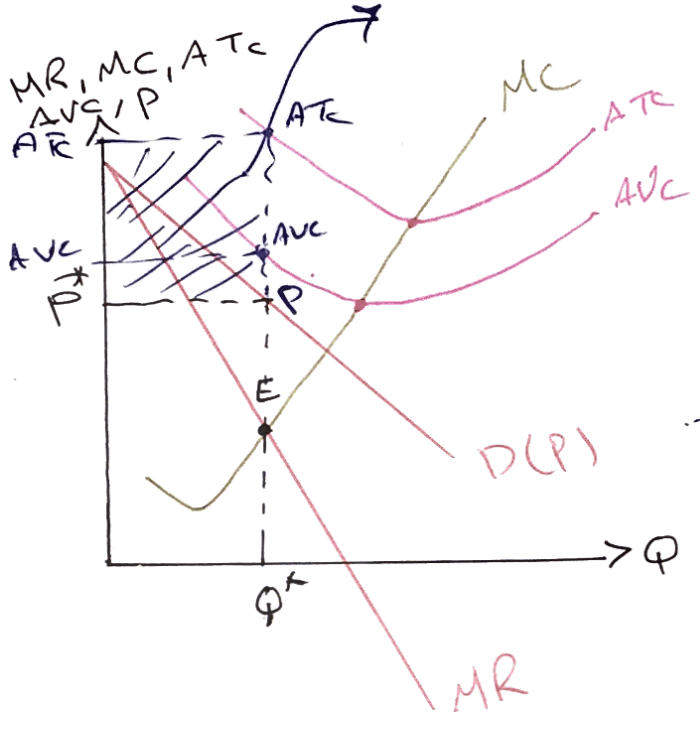 MR, MC, ATC
AVC, P
ATC
ATC
MC
ATC
AVC
AVC
AVC
P*
P
E
D(P)
Q
Q*
MR